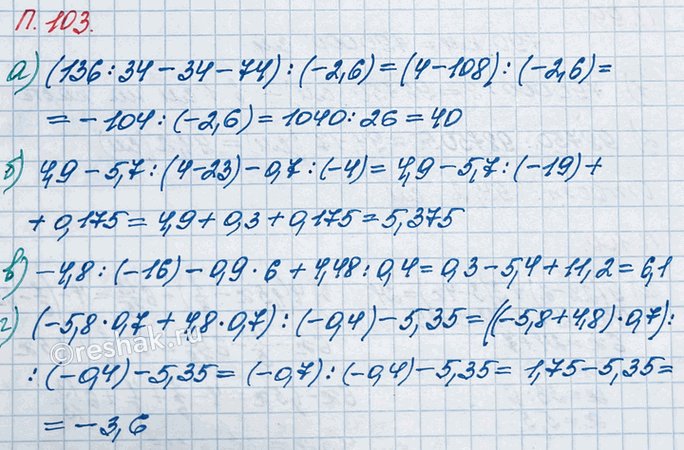 П. 103.
а) (136 : 34 − 34 − 74) : (−2,6) = (4 − 108) : (−2,6) =
= −104 : (−2,6) = 1040 : 26 = 40
б) 4,9 − 5,7 : (4 − 23) − 0,7 : (−4) = 4,9 − 5,7 : (−19) +
+ 0,175 = 4,9 + 0,3 + 0,175 = 5,375
в) −4,8 : (−16) − 0,9 · 6 + 4,48 : 0,4 = 0,3 − 5,4 + 11,2 = 6,1
г) (−5,8 · 0,7 + 4,8 · 0,7) : (−0,4) − 5,35 = ((−5,8 + 4,8) · 0,7) :
: (−0,4) − 5,35 = (−0,7) : (−0,4) − 5,35 = 1,75 − 5,35 =
= −3,6
©reshak.ru